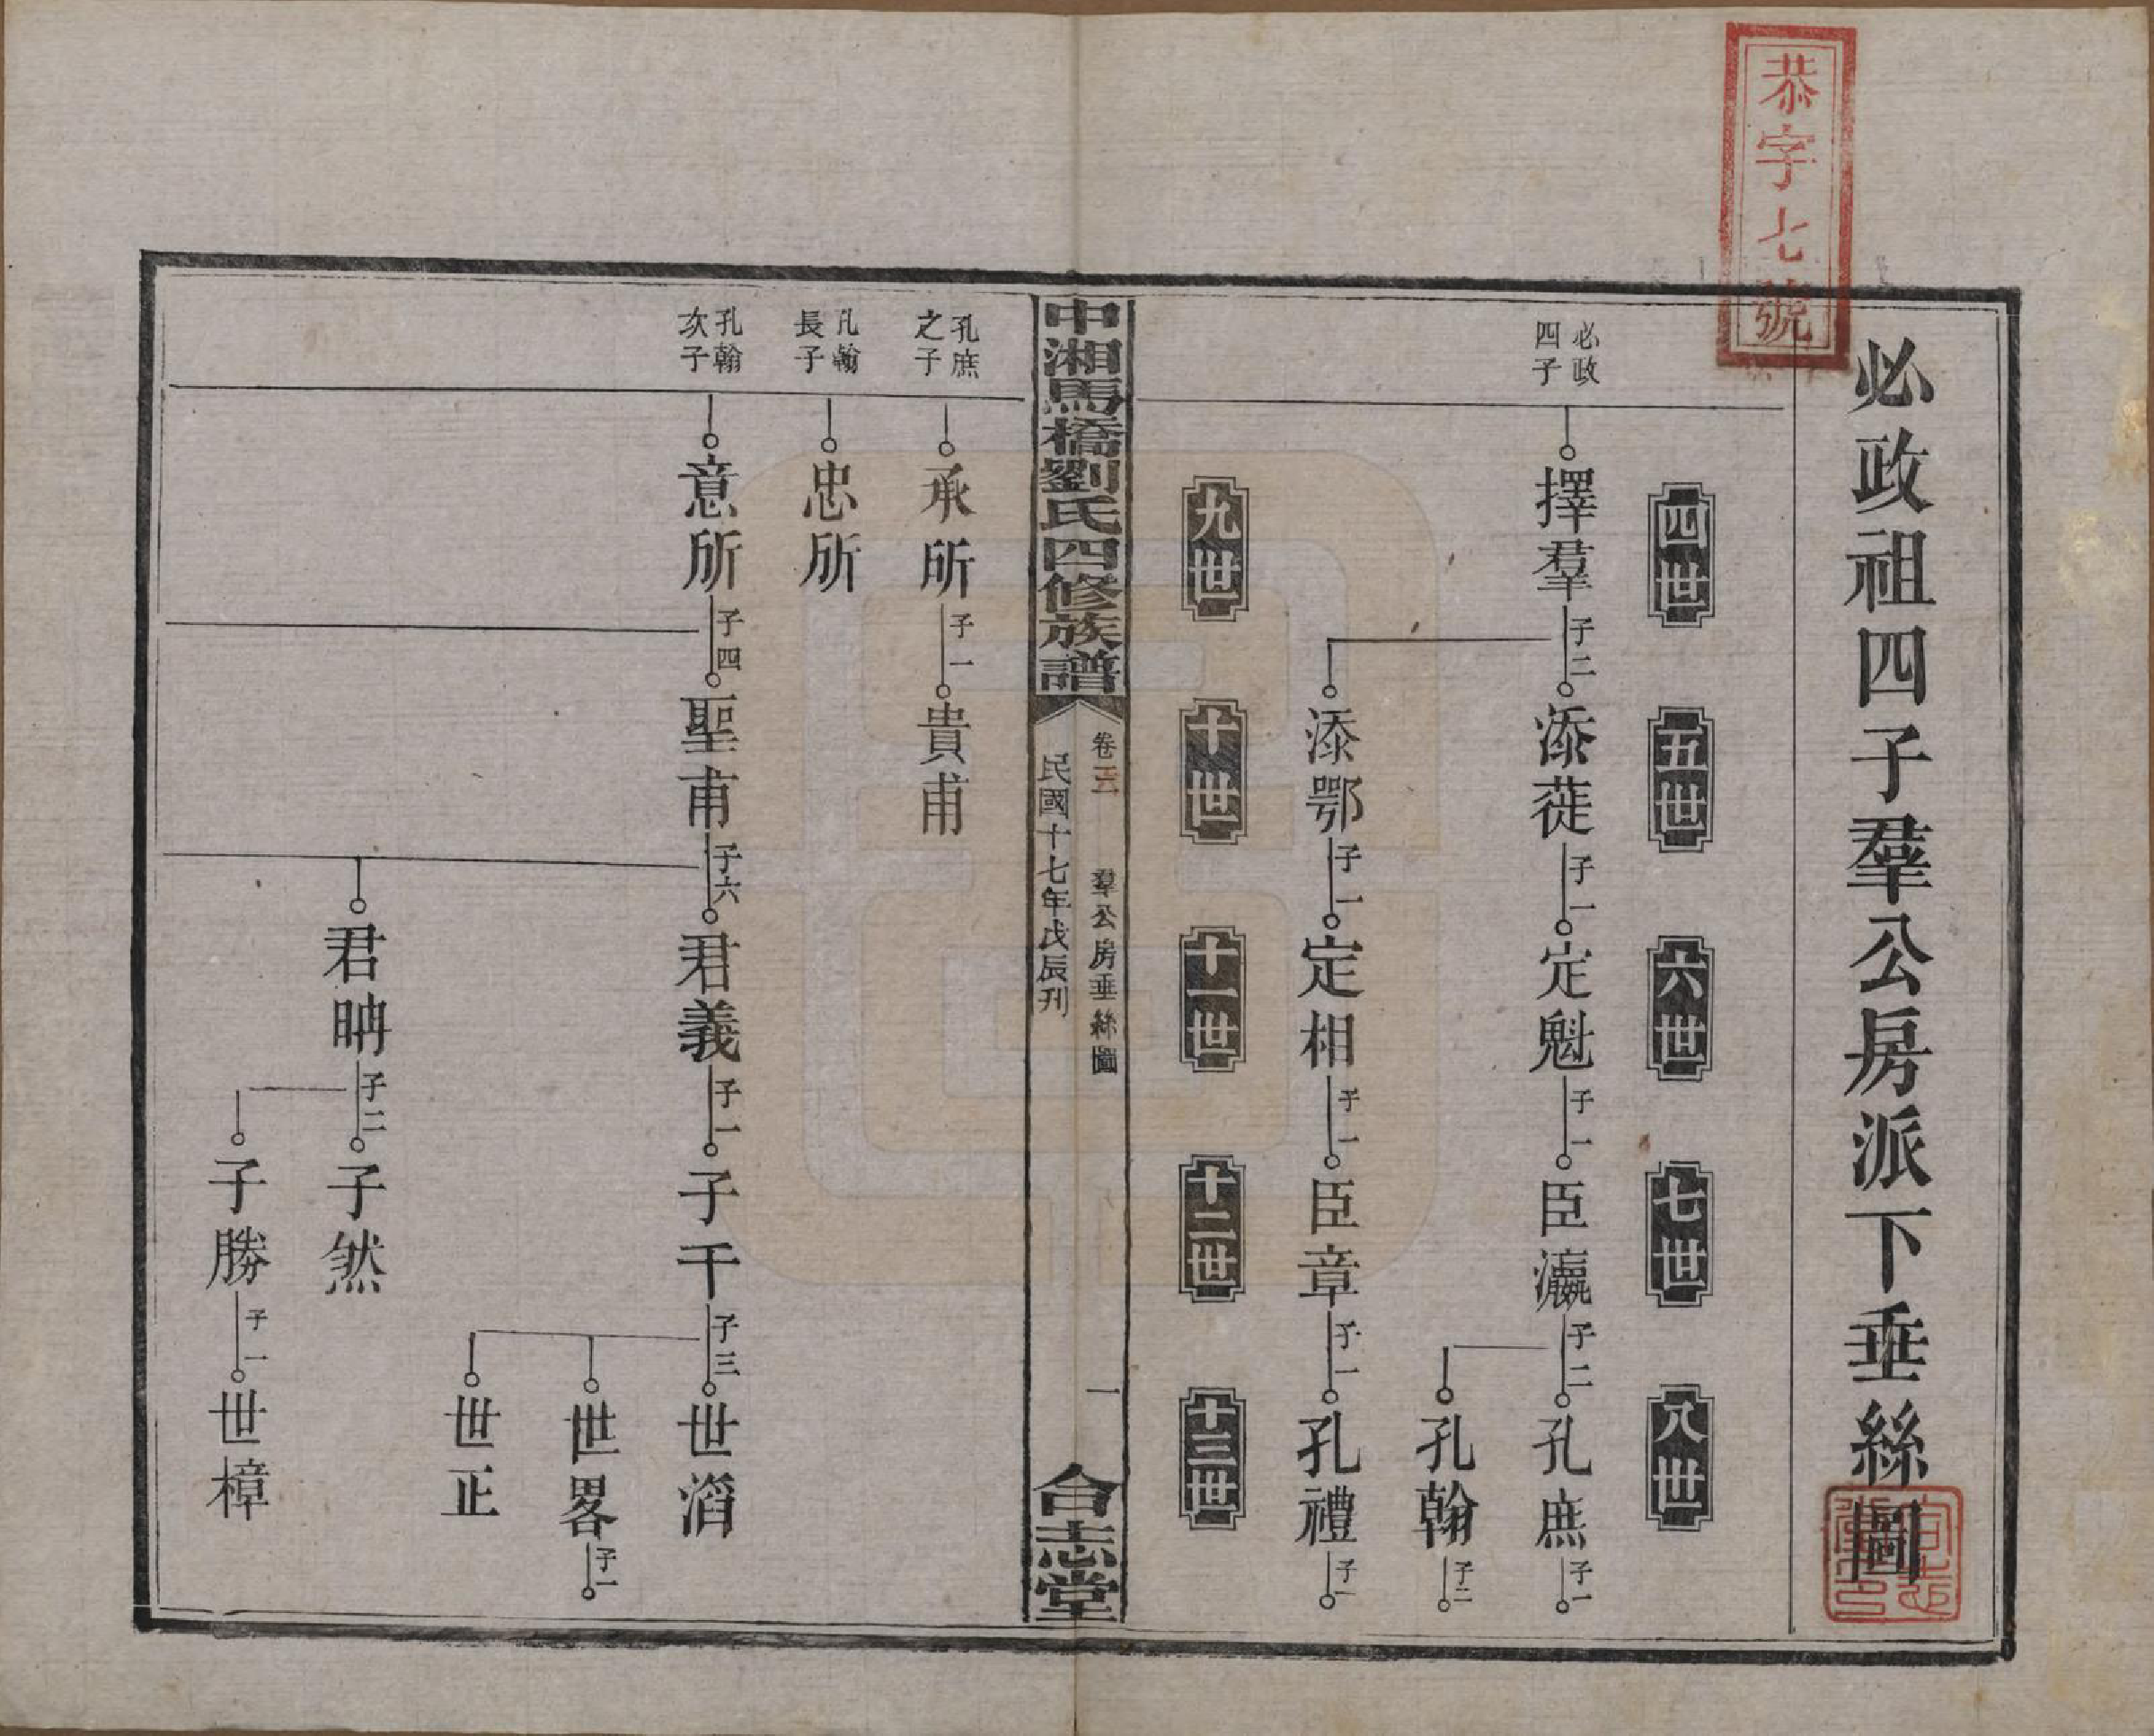 恭字七號
必政祖四子羣公房派下垂絲圖
四世
五世
六世
七世
八世
必政四子
擇羣 子二
添蓰 子一
定魁 子一
臣瀛 子二
孔庶 子一
孔翰 子二
添鄂 子一
定相 子一
臣章 子一
孔禮 子一
九世
十世
十一世
十二世
十三世
中湘馬橋劉氏四修族譜
卷三五 羣公房垂絲圖 一
民國十七年戊辰刋
合志堂
孔庶之子
承所 子一
貴甫
孔翰長子
忠所
孔翰次子
意所 子四
聖甫 子六
君義 子一
子千 子三
世滔
世畧 子一
世正
君晌 子二
子然
子勝 子一
世樟